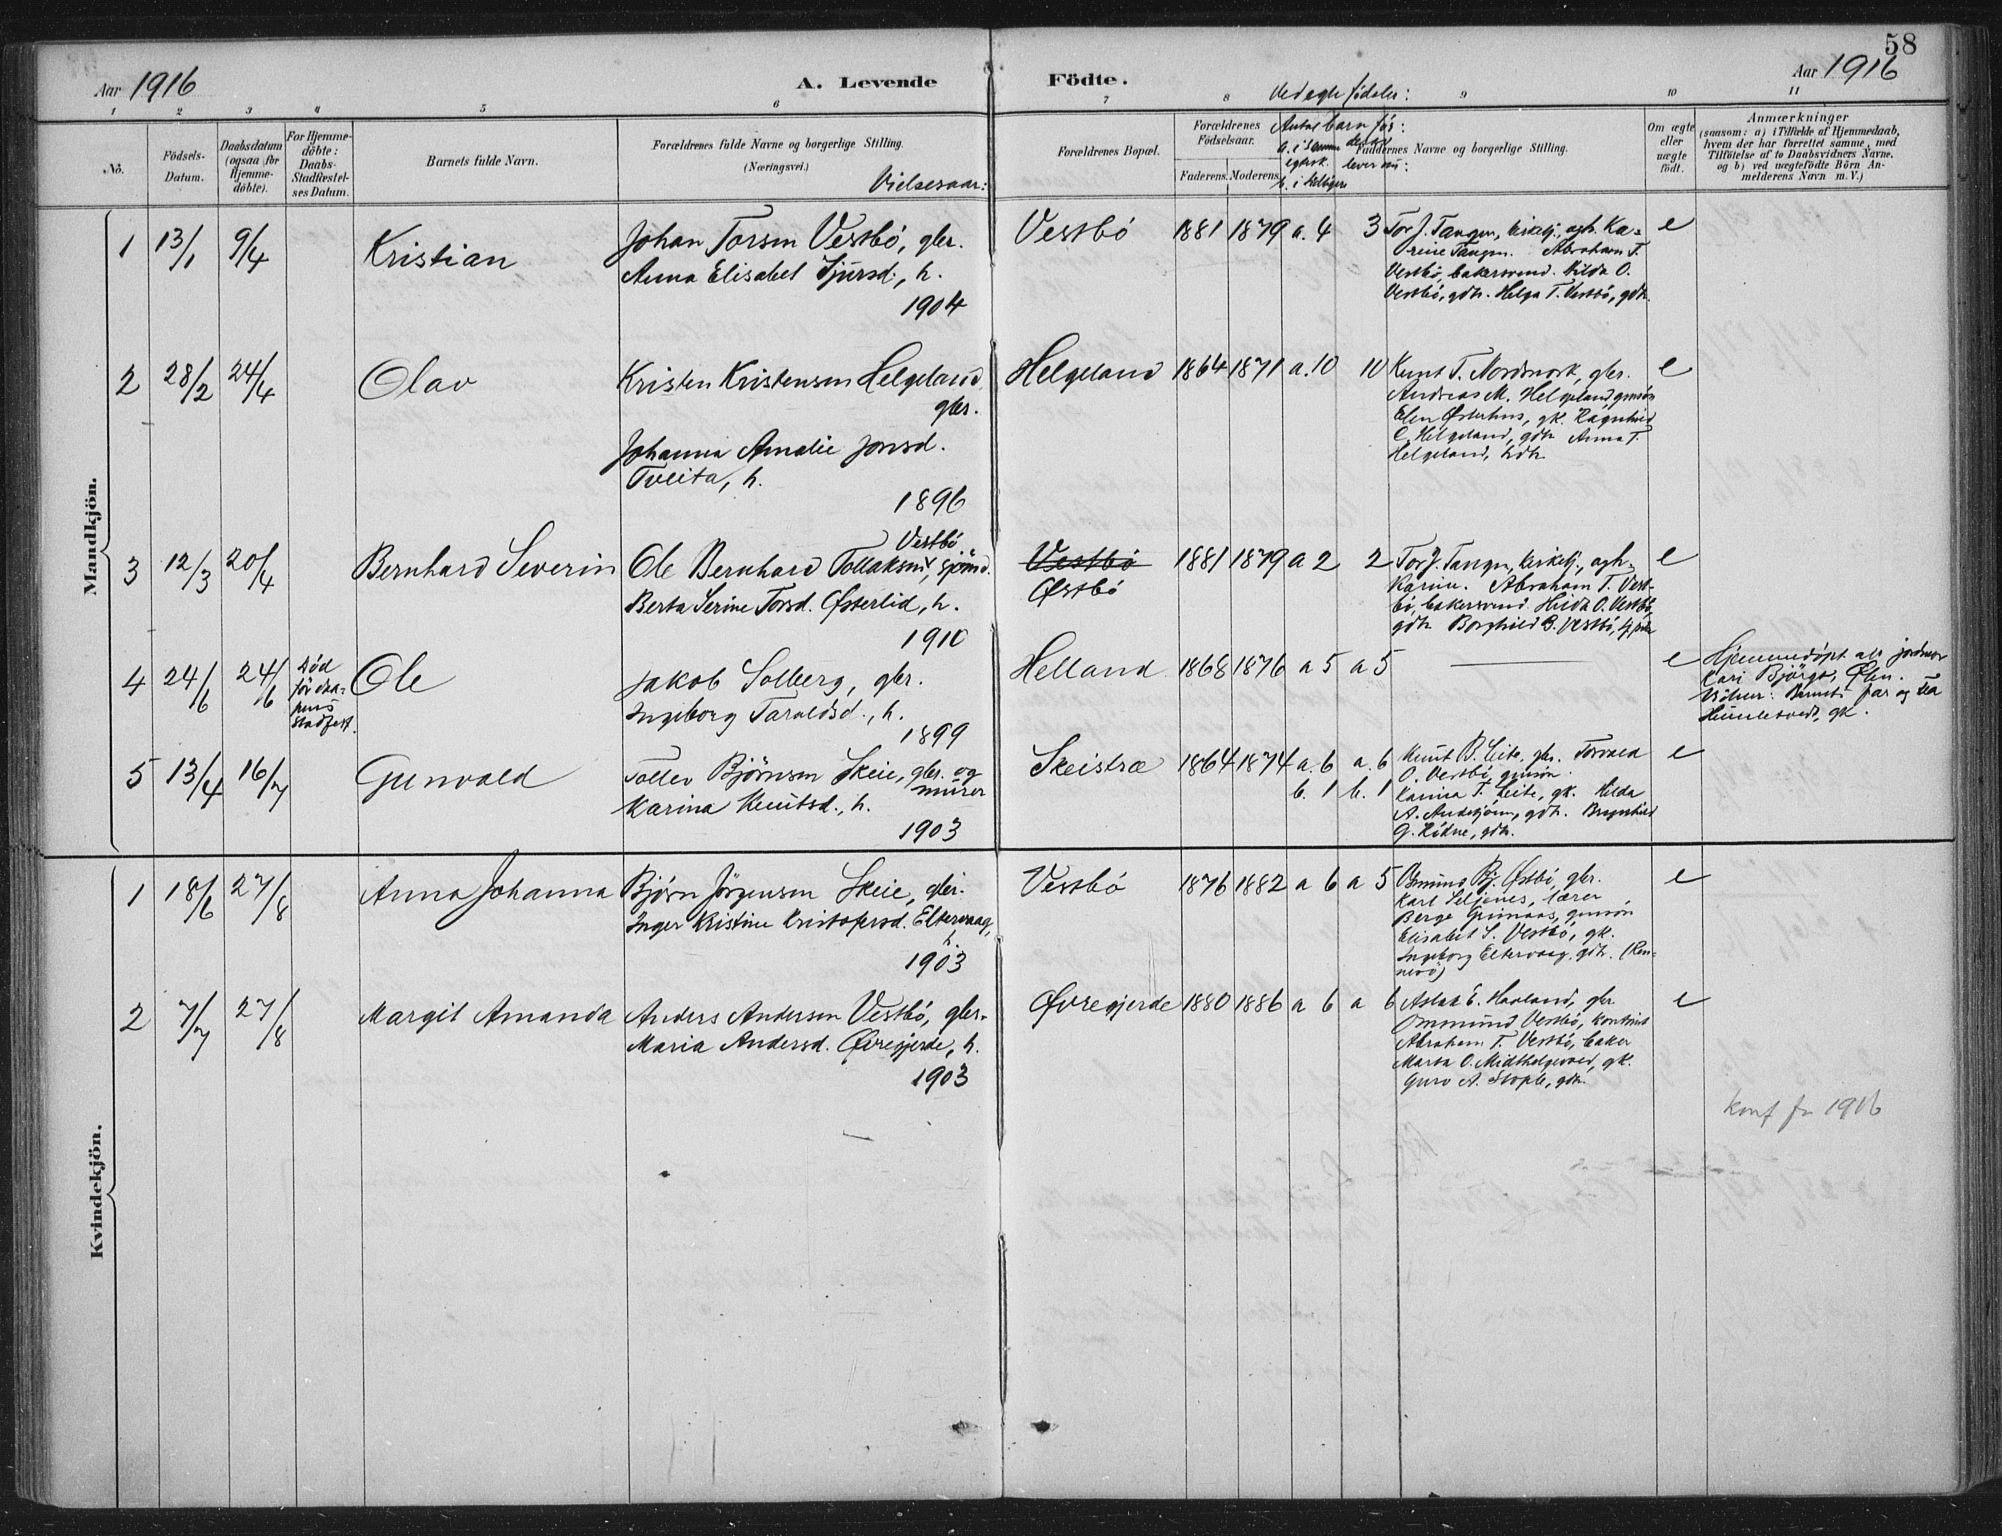 58
Aar 1916
A. Levende
Födte.
Ved egte födsler:
Aar 1916
1 2 3 4 5 6 7 8 9 10 11
No.
Födsels-
Datum.
Daabsdatum
(ogsaa for
Hjemme-
döbte).
For Hjemme-
döbte:
Daabs-
Stadfæstel-
ses Datum.
Barnets fulde Navn.
Forældrenes fulde Navne og borgerlige Stilling.
(Næringsvei.)
Vielsesaar:
Forældrenes Bopæl.
Forældrenes
Födselsaar.
Faderens. Moderens.
Antal barn før:
a. i samme
egtesk.
b. i tidligere
derav
lever nu:
Faddernes Navne og borgerlige Stilling.
Om ægte
eller
uægte
födt.
Anmærkninger
(saasom: a) i Tilfælde af Hjemmedaab,
hvem der har forrettet samme, med
Tilföielse af to Daabsvidners Navne,
og b) ved uægtefödte Börn An-
melderens Navn m. V.)
Mandkjön.
1 13/1 9/4 Kristian
Johan Torsen Vestbö, gbr.
Anna Elisabet Sjursd., h.
1904
Vestbö 1881 1879 a. 4 3
Tor J. Tangen, kirkelj., og h. Ka-
rine Tangen. Abraham T.
Vestbö, bakersvend. Hilda O.
Vestbö, gdtr. Helga T. Vestbö, gdtr.
e
2 28/2 24/4 Olav
Kristen Kristensen Helgeland,
gbr.
Johanna Amalie Jonsd.
Tveita, h.
1896
Helgeland 1864 1871 a. 10 10
Knut T. Nordsnort, gbr.
Andreas M. Helgeland, gmsön
Elen Østerhus, gk. Ragnhild
C. Helgeland, gdtr Anna T.
Helgeland, hdtr.
e
3 12/3 20/4 Bernhard Severin
Vestbö
Ole Bernhard Tollaksen, sjömd.
Berta Serine Torsd. Østerlid, h.
1910
Vestbö
Østbö
1881 1879 a 2 2
Tor J. Tangen, kirkelj., og h.
Karine. Abraham T. Vest-
bö, bakersvend. Hilda O. Vestbö,
gdtr Borghild B. Vestbö,
e
4 24/6 24/6
Död
för daa-
pens
Stadfest.
Ole
Jakob Solberg, gbr.
Ingeborg Taraldsd., h.
1899
Helland 1868 1876 a 5 a 5
e
Hjemmedöpt av jordmor
Kari Bjørge, Ølen.
Vidner: Barnets far og Lea
Humlesvedt, gk.
5 13/4 16/7 Gunvald
Tollev Björnsen Skeie, gbr. og
murer
Karina Knutsd., h.
1903
Skeistræ 1864 1874 a. 6 a. 6
b. 1 b. 1
Knut B. Leite, gbr. Torvald
O. Vestbö, gmsön.
Karina T. Leite, gk. Hilda
A. gdtr. Bergnhild
G. Rödne, gdtr.
e
Kvindekjön.
1 18/6 27/8 Anna Johanna
Björn Jörgensen Skeie, gbr.
Inger Kristine Kristofersd. Eltervaag,
h.
1903
Vestbö 1876 1882 a 6 a 5
Omund Bj. Østbö, gbr.
Karl Seljenes, lærer
Berge Grimaas, gmsön
Elisabet S. Vestbö, gk.
Ingeborg Eltervaag, gdtr. (Ren-
nesö)
e
2 7/7 27/8 Margit Amanda
Anders Andersen Vestbö, gbr.
Maria Andersd. Øvregjerde, h.
1903
Øvregjerde 1880 1886 a 6 a 6
Aslak E. Haaland, gbr
Ommund Vestbö, kontorist
Abraham T. Vestbö, baker
Marta O. Midthelgevold, gk.
Guro A. Stople, gdtr.
e
konf fr 1916